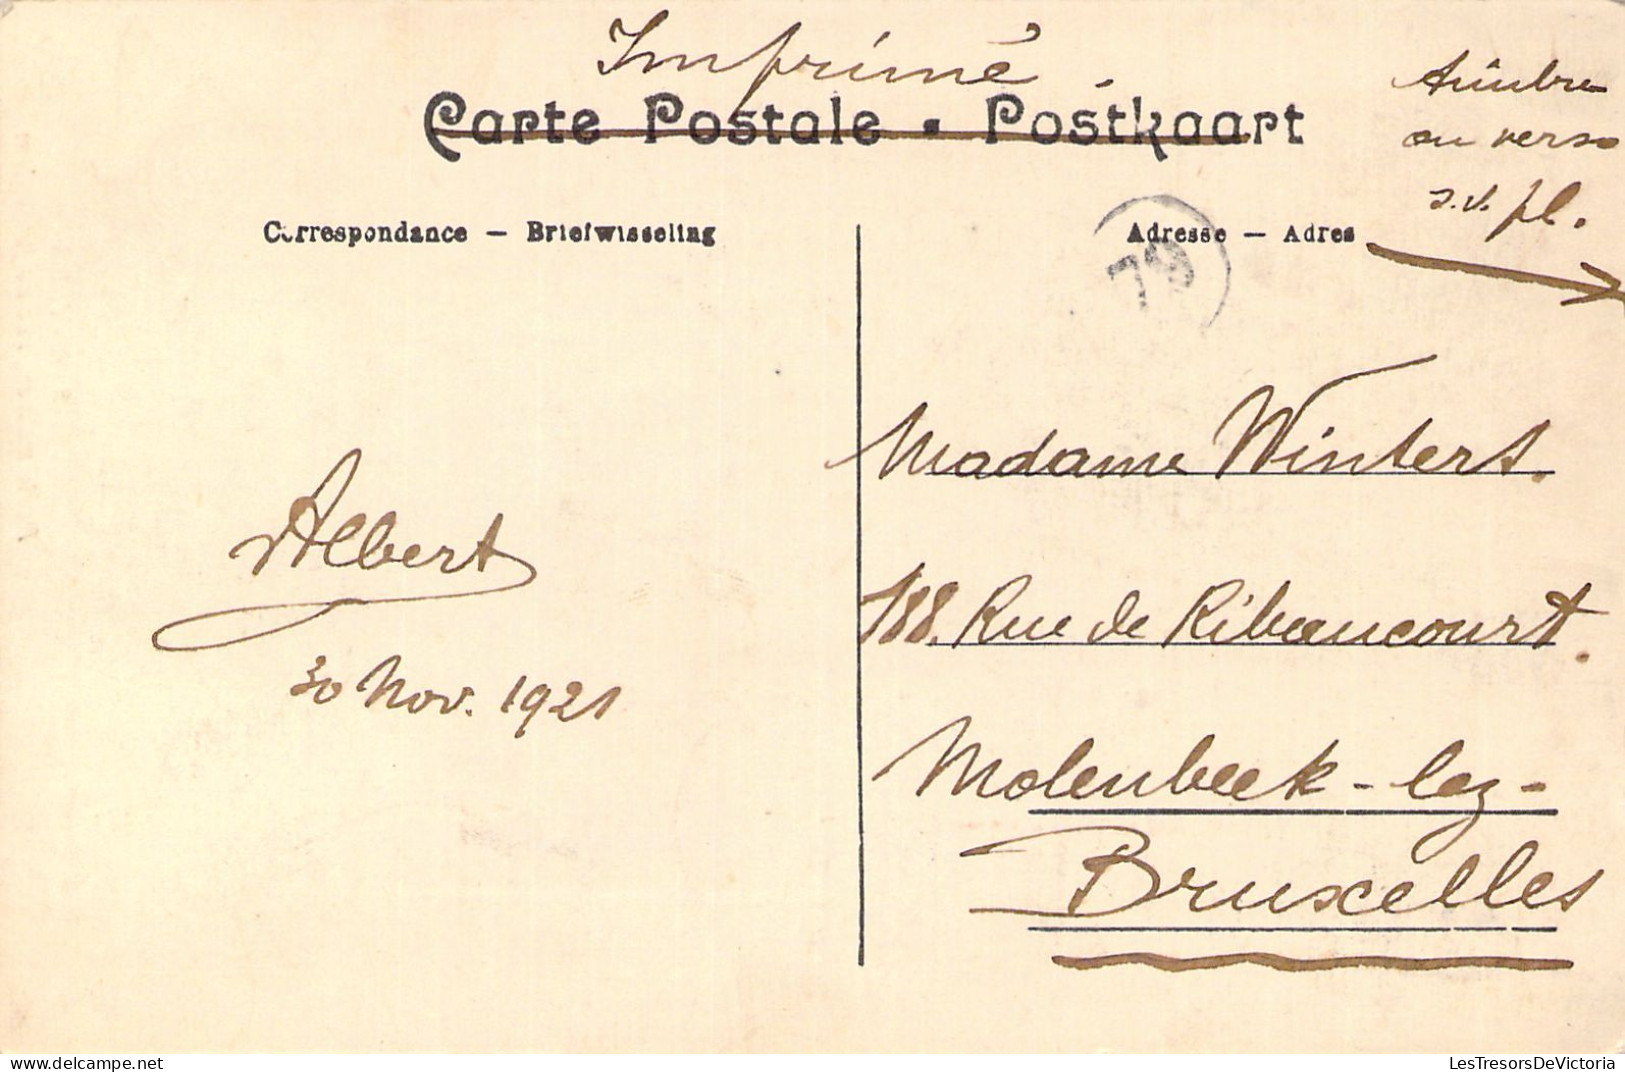 Imprimé.
Carte Postale • Postkaart
Timbre
au verso
s.v. pl.
Correspondance — Briefwisseling
Adresse — Adres
79
Madame Winters.
188. Rue de Ribaucourt.
Molenbeek-lez-
Bruxelles
Albert
30 Nov. 1921
LesTresorsDeVictoria